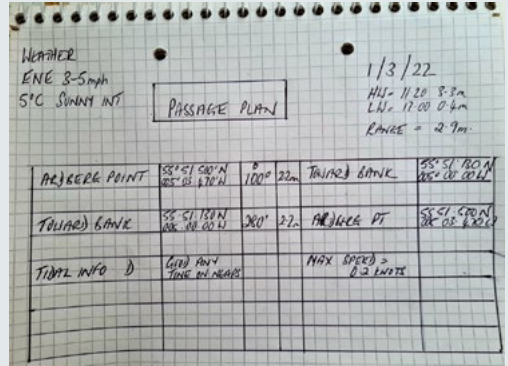 WEATHER
ENE 3-5mph
5°C SUNNY INT
PASSAGE PLAN
1/3/22
HW- 1120 3.3m
LW- 17.00 0.4m
RANGE = 2.9m.
ARDBERG POINT 55° 51 500'N 005° 03 470'W 100° 2.2m TOWARD BANK 55° 51 130 N 005° 00 00 W
TOWARD BANK 55 51 130N 005 00 00W 280° 2.2m 55 51 500N
TIDAL INFO GOOD ANY TIME ON NEAPS MAX SPEED = 0.2 KNOTS